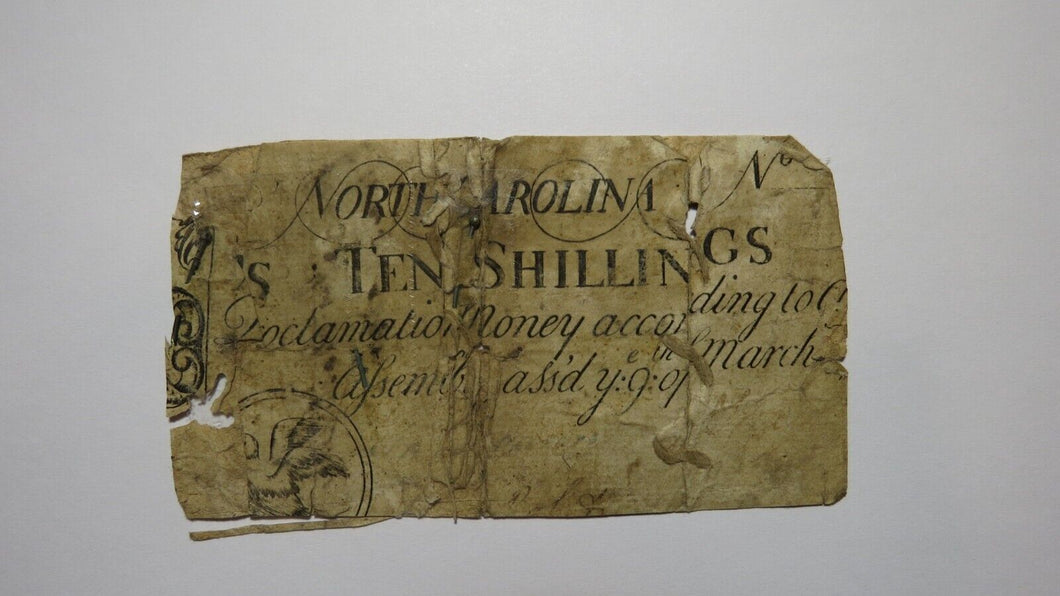 NORTH CAROLINA No
'S TEN SHILLINGS
Proclamation Money according to
Assemb pass'd ye: 9th: of March